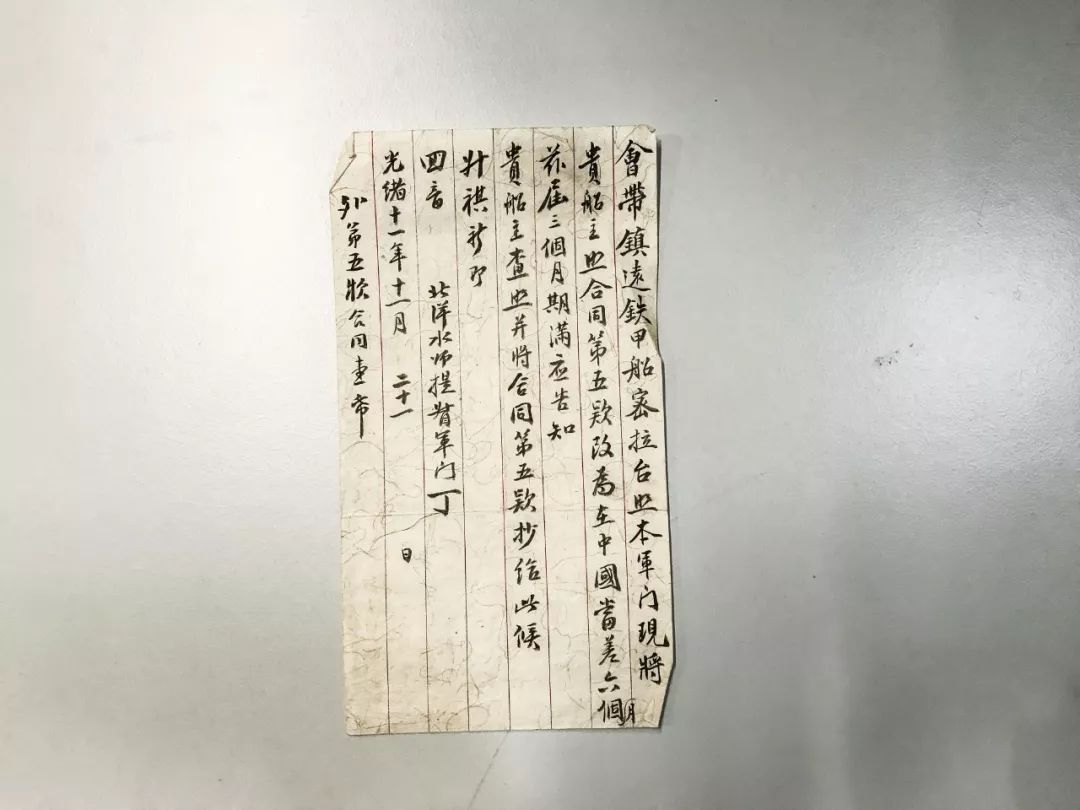 會帶鎮遠鉄甲船密拉台照本軍门現將
貴船主照合同第五款改為在中國當差六個月
茲屆三個月期滿應告知
貴船主查照并將合同第五款抄給此候
升祺新即
回音
北洋水师提督军门丁
光緒十一年十一月 二十一 日
外第五欵合同壹帋